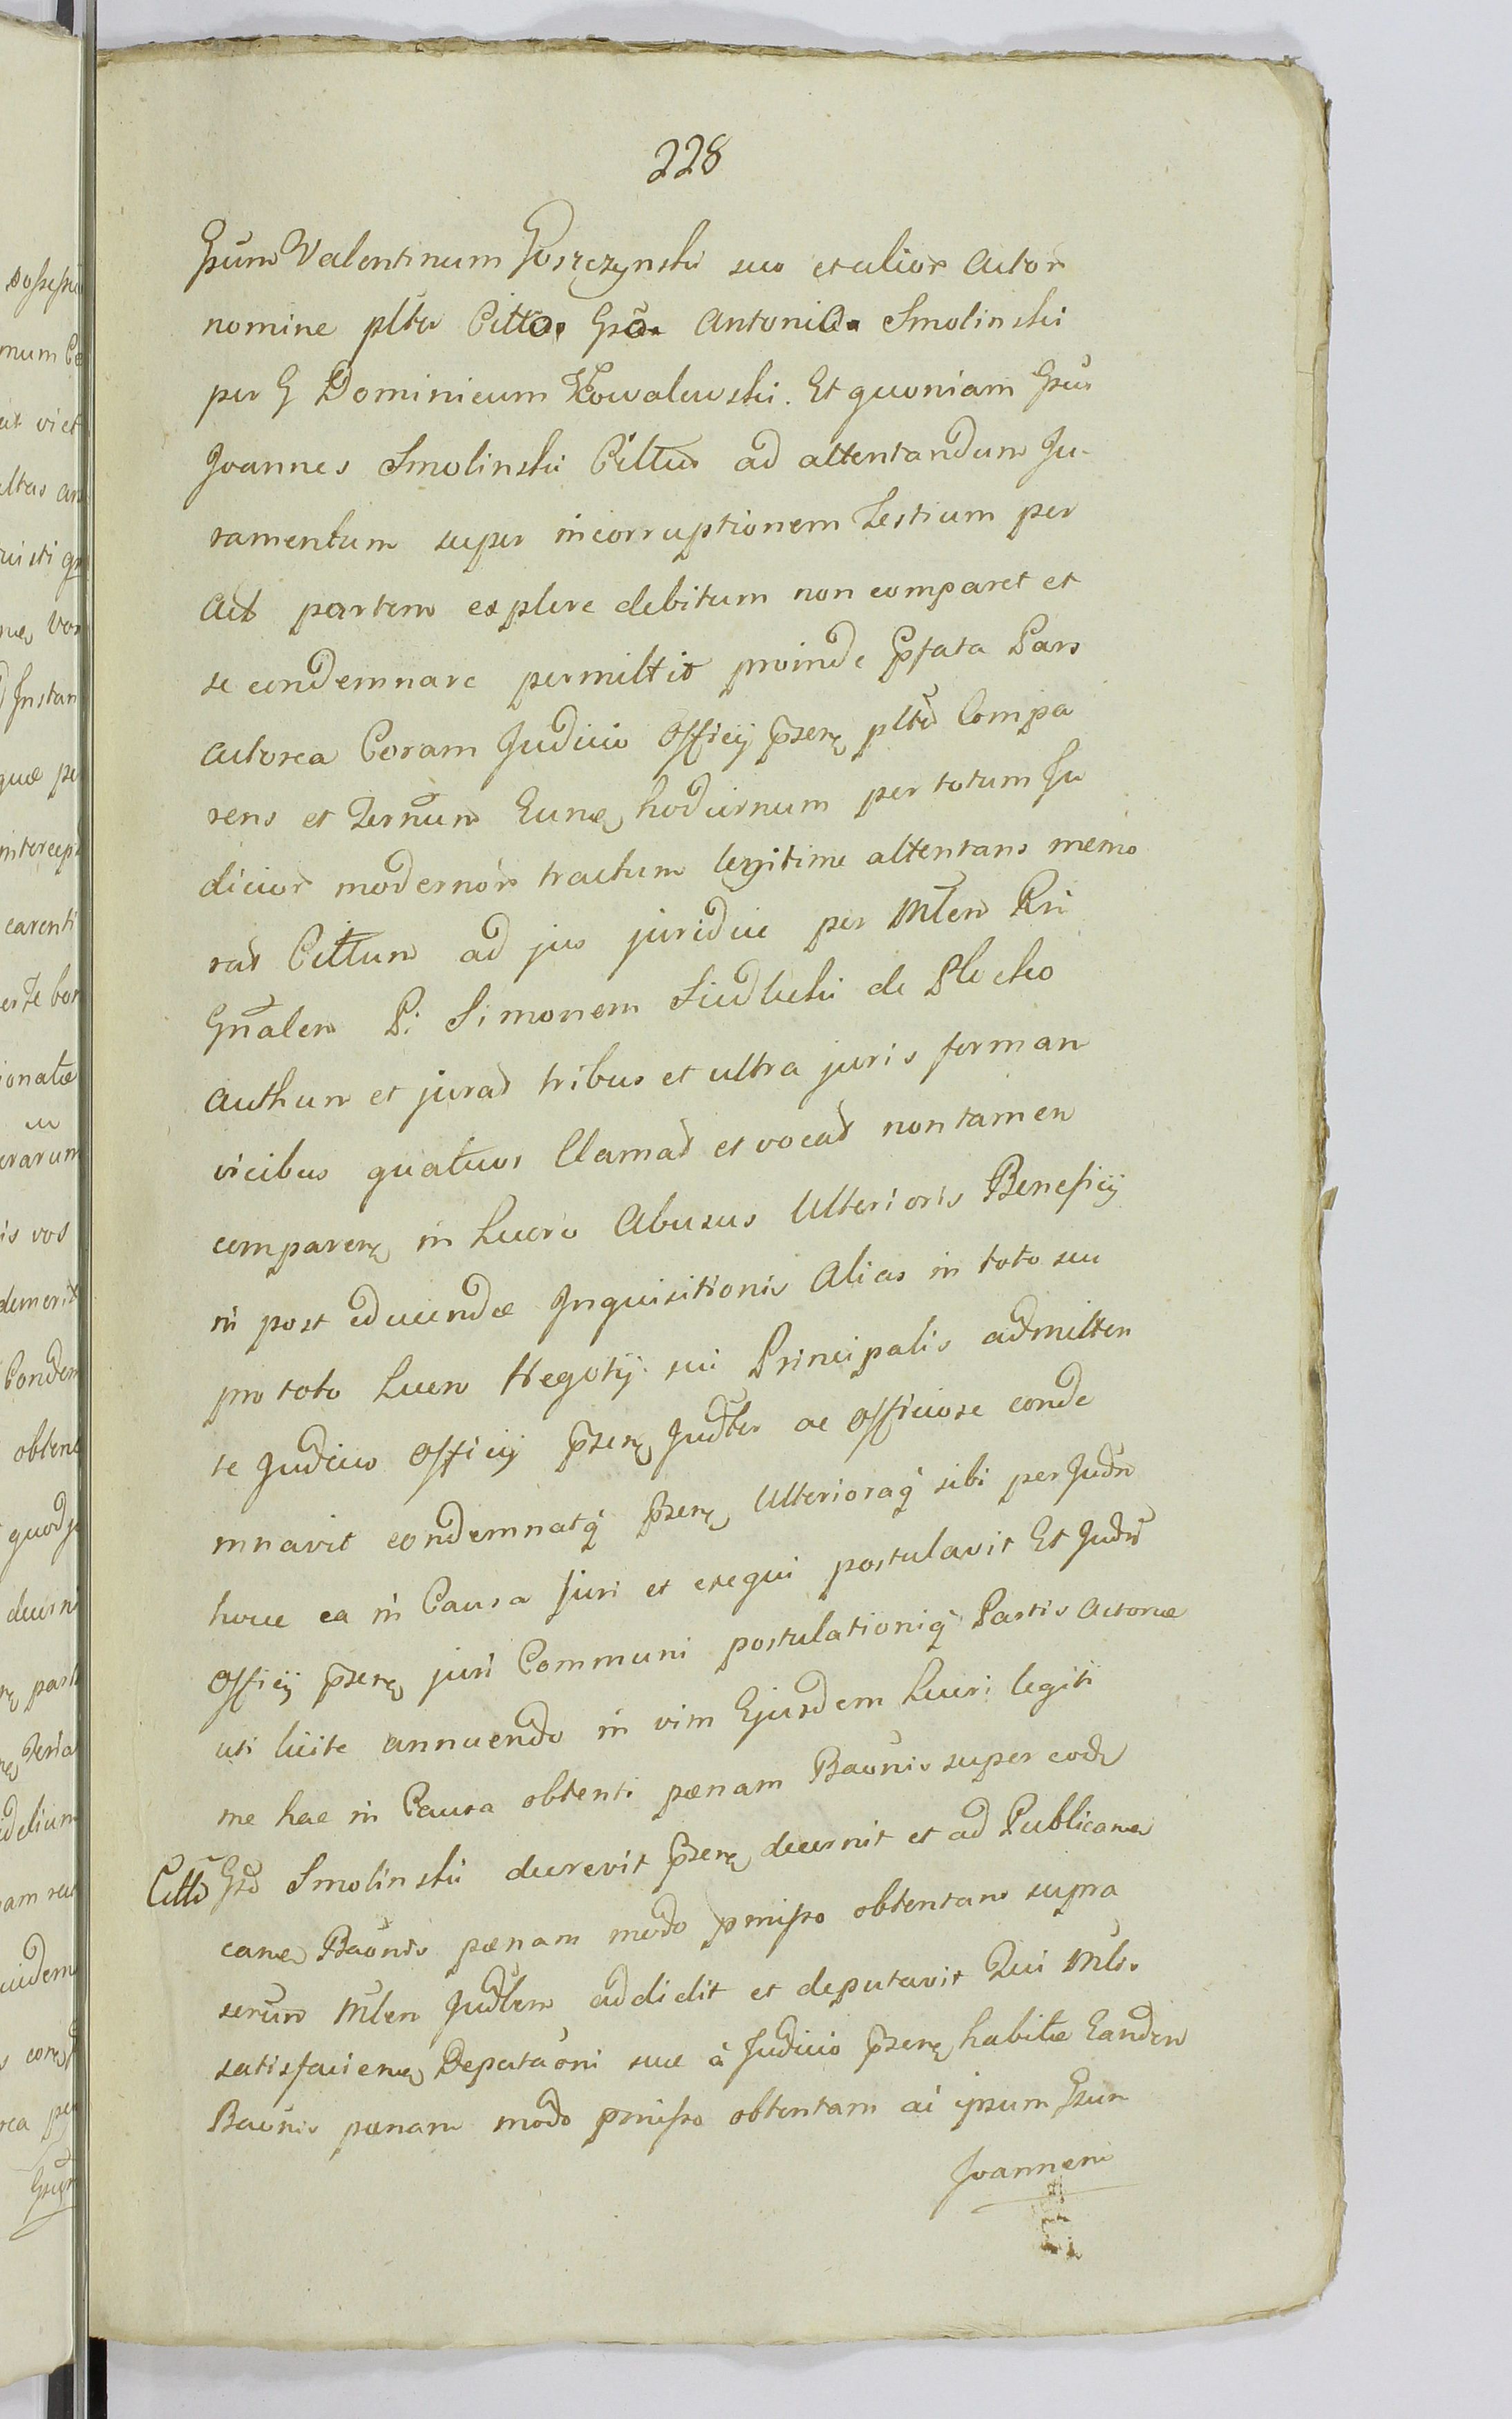 228
Gsum Valentinum Goszczynski suo et alior Actor
nomine pltu Citto Gso Antonio Smolinski
per G Dominicum Kowalewski. Et quoniam Gsus
Joannes Smolinski Cittus ad attentandum Ju-
ramentum super incorruptionem Testium per
Act partem explere debitum non comparet et
se condemnare permittit proinde Pfata Pars
Actorea Coram Judicio Officij psen pltr Compa
rens et Ternum Eunc hodiernum per totum Ju
dicior modernor tractum legitime attentans memo
rat Cittum ad jus juridice per Mlem Rni
Gnalem P: Simonem Siedlecki de Plocko
Authum et jurat tribus et ultra juris forman
vicibus quatuor Clamat et vocat non tamen
comparen in Lucro Abusus Ulterioris Beneficij
in post educendæ Inquisitionis Alias in toto seu
pro toto Lucro Negotij sui Principalis admitten
te Judicio Officij psen Judlr ac officiose conde
mnavit condemnatq psen Ulterioraq sibi per Judm
hocce ea in Causa Juri et exequi postulavit Et Judm
Officij psen juri Communi postulationiq Partis Actoreæ
uti licite annuendo in vim Ejusdem Lucri legiti
me hac in Causa obtenti pænam Baonis super eodem
Citto Gso Smolinski decrevit psen decernit et ad Publicanda
canda Baonis pænam modo pmisso obtentam supra
serum Mlem Judlem addidit et deputavit Qui Mlis
satisfaciendo Deputaoni suæ à Judicio psen habitæ Eandem
Baonis pænam modo pmisso obtentam ac ipsum Gsum
Joannem